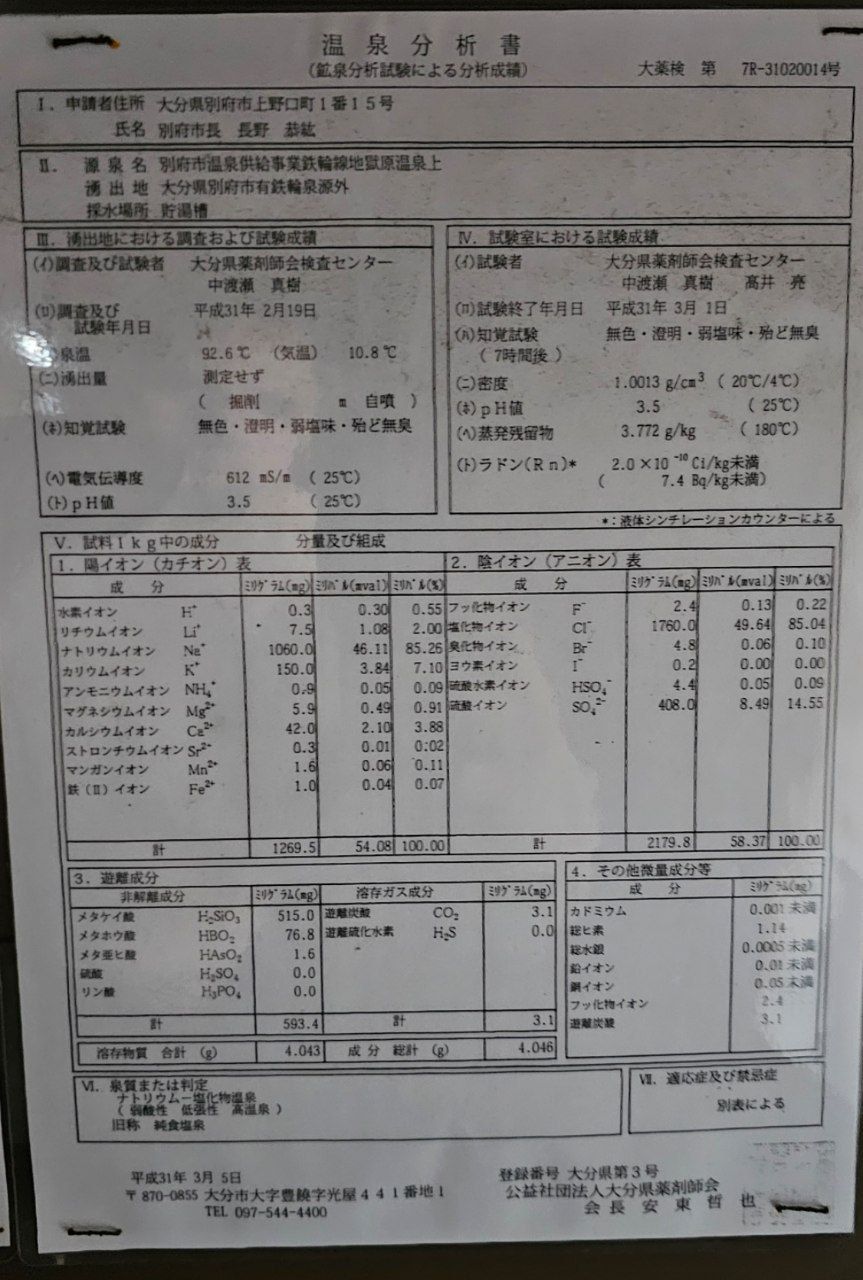 温泉分析書
(鉱泉分析試験による分析成績)
大薬検 第 7R-31020014号
Ⅰ．申請者住所 大分県別府市上野口町1番15号
氏名 別府市長 長野 恭紘
Ⅱ． 源泉名 別府市温泉供給事業鉄輪線地獄原温泉上
湧出地 大分県別府市有鉄輪泉源外
採水場所 貯湯槽
Ⅲ．湧出地における調査および試験成績
(ｲ)調査及び試験者 大分県薬剤師会検査センター
中渡瀬 真樹
(ﾛ)調査及び 平成31年 2月19日
試験年月日
泉温 92.6℃ (気温) 10.8℃
(ﾆ)湧出量 測定せず
( 掘削 m 自噴 )
(ﾎ)知覚試験 無色・澄明・弱塩味・殆ど無臭
(ﾍ)電気伝導度 612 mS/m (25℃)
(ﾄ)pH値 3.5 (25℃)
Ⅳ．試験室における試験成績
(ｲ)試験者 大分県薬剤師会検査センター
中渡瀬 真樹 髙井 亮
(ﾛ)試験終了年月日 平成31年 3月 1日
(ﾊ)知覚試験 無色・澄明・弱塩味・殆ど無臭
(7時間後)
(ﾆ)密度 1.0013 g/cm³ (20℃/4℃)
(ﾎ)pH値 3.5 (25℃)
(ﾍ)蒸発残留物 3.772 g/kg (180℃)
(ﾄ)ラドン(Rn)* 2.0×10⁻¹⁰ Ci/kg未満
( 7.4 Bq/kg未満)
*：液体シンチレーションカウンターによる
Ⅴ．試料1kg中の成分 分量及び組成
1．陽イオン(カチオン)表
成分 ﾐﾘｸﾞﾗﾑ(mg) ﾐﾘﾊﾞﾙ(mval) ﾐﾘﾊﾞﾙ(%)
水素イオン H⁺ 0.3 0.30 0.55
リチウムイオン Li⁺ 7.5 1.08 2.00
ナトリウムイオン Na⁺ 1060.0 46.11 85.26
カリウムイオン K⁺ 150.0 3.84 7.10
アンモニウムイオン NH₄⁺ 0.9 0.05 0.09
マグネシウムイオン Mg²⁺ 5.9 0.49 0.91
カルシウムイオン Ca²⁺ 42.0 2.10 3.88
ストロンチウムイオン Sr²⁺ 0.3 0.01 0.02
マンガンイオン Mn²⁺ 1.6 0.06 0.11
鉄(Ⅱ)イオン Fe²⁺ 1.0 0.04 0.07
計 1269.5 54.08 100.00
2．陰イオン(アニオン)表
成分 ﾐﾘｸﾞﾗﾑ(mg) ﾐﾘﾊﾞﾙ(mval) ﾐﾘﾊﾞﾙ(%)
フッ化物イオン F⁻ 2.4 0.13 0.22
塩化物イオン Cl⁻ 1760.0 49.64 85.04
臭化物イオン Br⁻ 4.8 0.06 0.10
ヨウ素イオン I⁻ 0.2 0.00 0.00
硫酸水素イオン HSO₄⁻ 4.4 0.05 0.09
硫酸イオン SO₄²⁻ 408.0 8.49 14.55
計 2179.8 58.37 100.00
3．遊離成分
非解離成分 ﾐﾘｸﾞﾗﾑ(mg)
メタケイ酸 H₂SiO₃ 515.0
メタホウ酸 HBO₂ 76.8
メタ亜ヒ酸 HAsO₂ 1.6
硫酸 H₂SO₄ 0.0
リン酸 H₃PO₄ 0.0
計 593.4
溶存ガス成分 ﾐﾘｸﾞﾗﾑ(mg)
遊離炭酸 CO₂ 3.1
遊離硫化水素 H₂S 0.0
計 3.1
溶存物質 合計 (g) 4.043 成分 総計 (g) 4.046
4．その他微量成分等
成分 ﾐﾘｸﾞﾗﾑ(mg)
カドミウム 0.001未満
総ヒ素 1.14
総水銀 0.0005未満
鉛イオン 0.01未満
銅イオン 0.05未満
フッ化物イオン 2.4
遊離炭酸 3.1
Ⅵ．泉質または判定
ナトリウム－塩化物温泉
(弱酸性 低張性 高温泉)
旧称 純食塩泉
Ⅶ．適応症及び禁忌症
別表による
平成31年 3月 5日
〒870-0855 大分市大字豊饒字光屋441番地1
TEL 097-544-4400
登録番号 大分県第3号
公益社団法人大分県薬剤師会
会長 安東 哲也